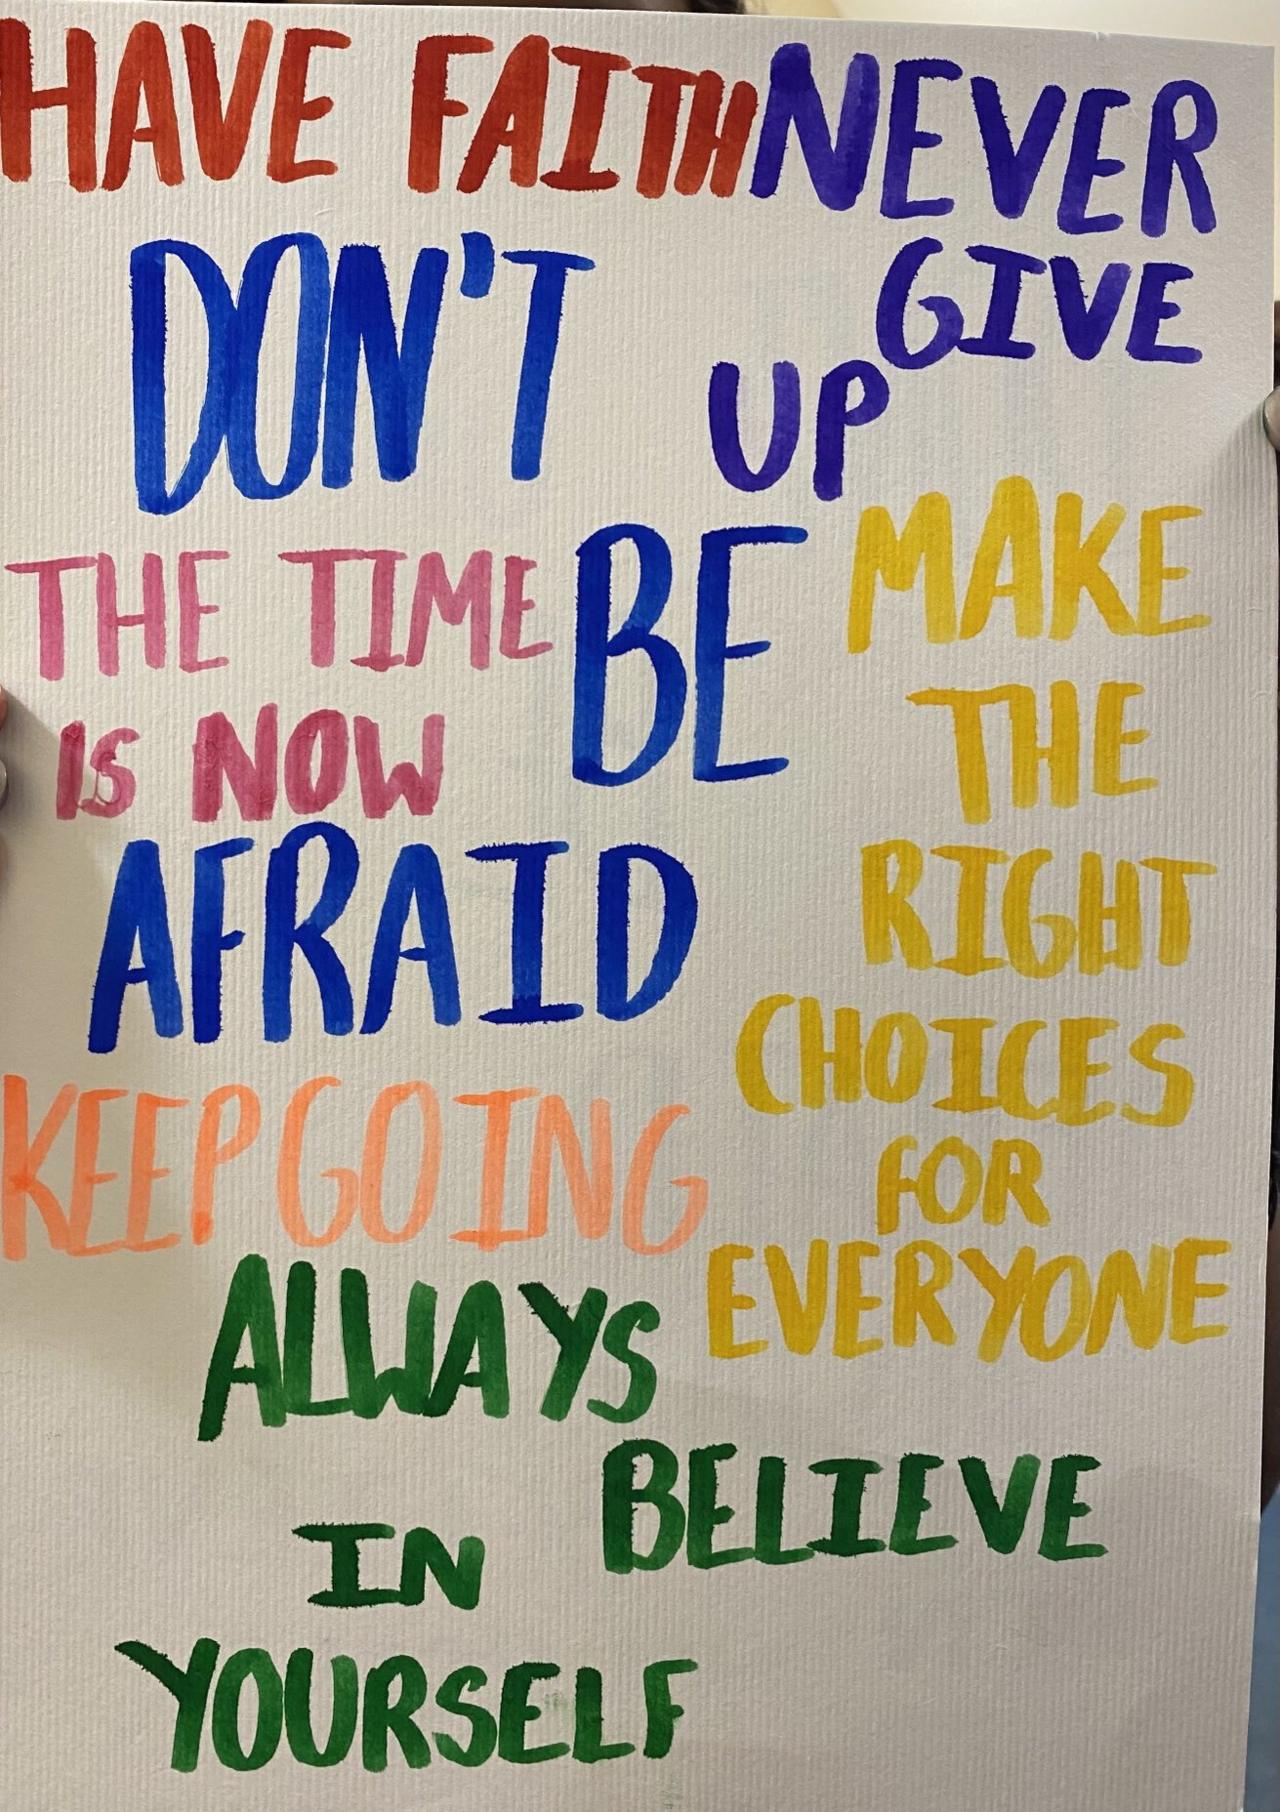 HAVE FAITH
NEVER
GIVE
UP
DON'T
BE
AFRAID
THE TIME
IS NOW
MAKE
THE
RIGHT
CHOICES
FOR
EVERYONE
KEEP GOING
ALWAYS
BELIEVE
IN
YOURSELF